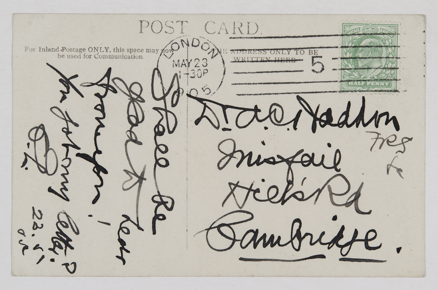 POST CARD.
For Inland Postage ONLY, this space may now
be used for Communication.
THE ADDRESS ONLY TO BE
WRITTEN HERE
LONDON
MAY 23
1-30P
05
5
HALF PENNY
Dr. A. C. Haddon
FRS
Inisfail
Hills Rd
Cambridge.
Shall be
glad to hear
from you!
You got my letter?
22.5.
05